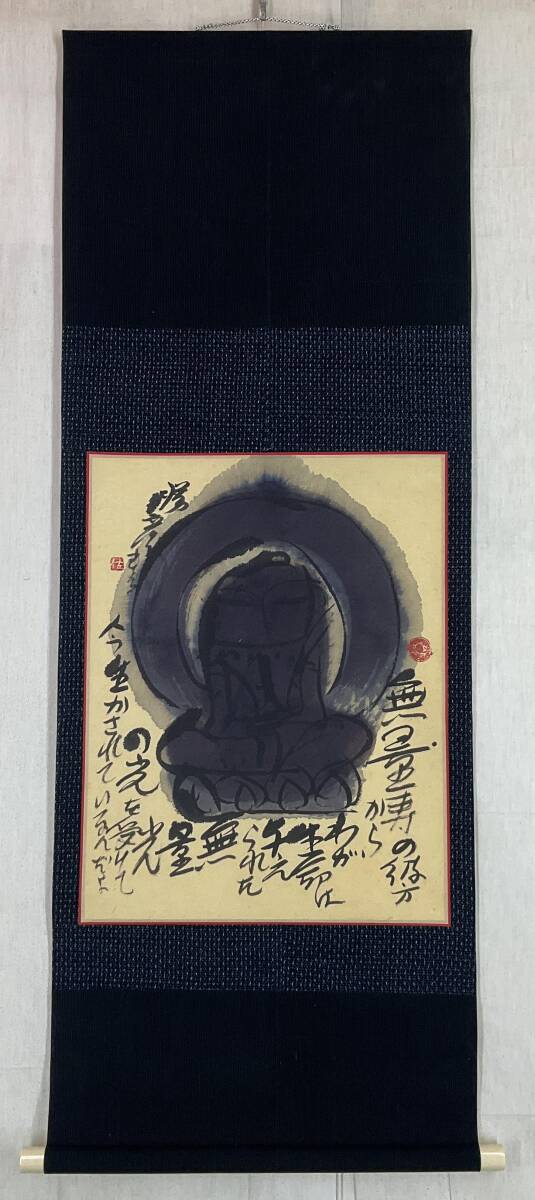 無量寿の彼方
から
わが
生命は
与え
られた
無
量
光
の光を受けて
今生かされているんだよ